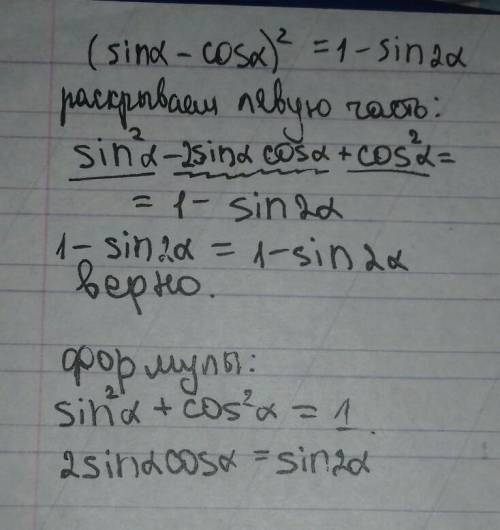 (sinα - cosα)² = 1 - sin2α
раскрываем левую часть:
sin²α - 2sinα cosα + cos²α =
= 1 - sin2α
1 - sin2α = 1 - sin2α
верно.
формулы:
sin²α + cos²α = 1
2sinαcosα = sin2α